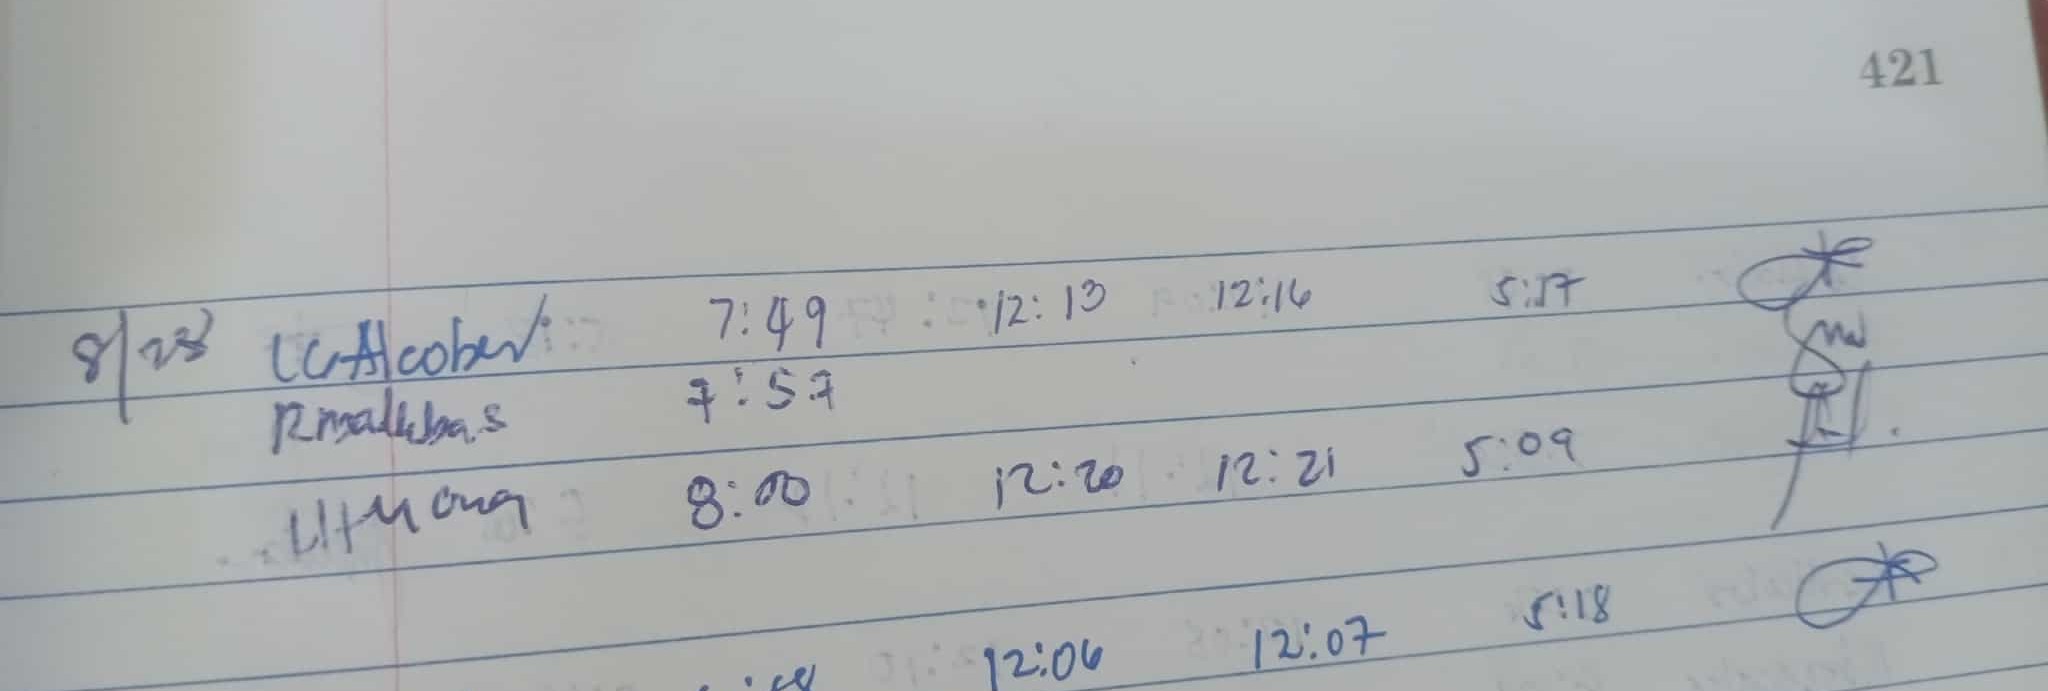 421
8/28 LCAlcober 7:49 12:13 12:16 5:17
7:57
8:00 12:20 12:21 5:09
12:06 12:07 5:18